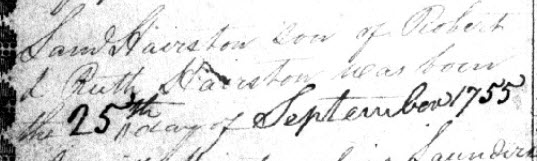 Saml Hairston Son of Robert
& Ruth Hairston was born
the 25th day of September 1755
Saunders